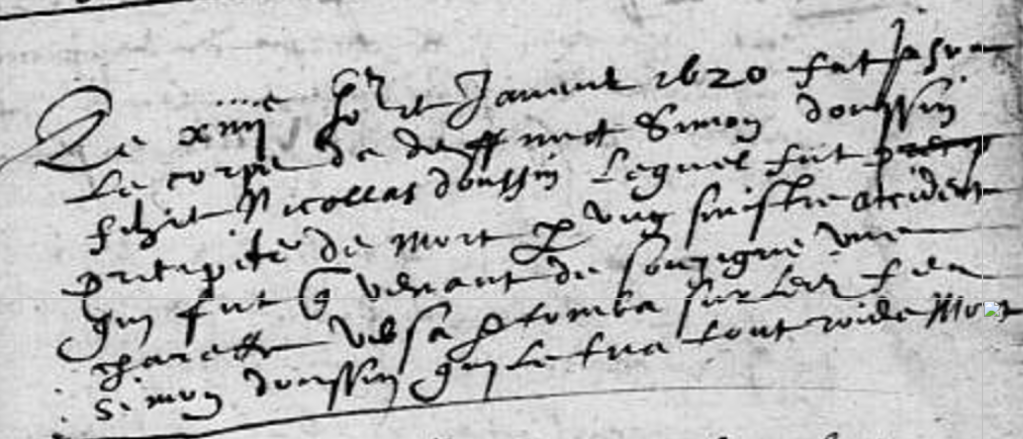 Le xiiii^e jo^r de Janvier 1620 fut
Le corps de deffunct Simon doussin
filz de Nicollas doussin Lequel fut
precipité de mort p ung sinistre accident
quy fut q venant de une
charette versa & tomba sur led feu
Simon doussin quy le tua tout roide Mort